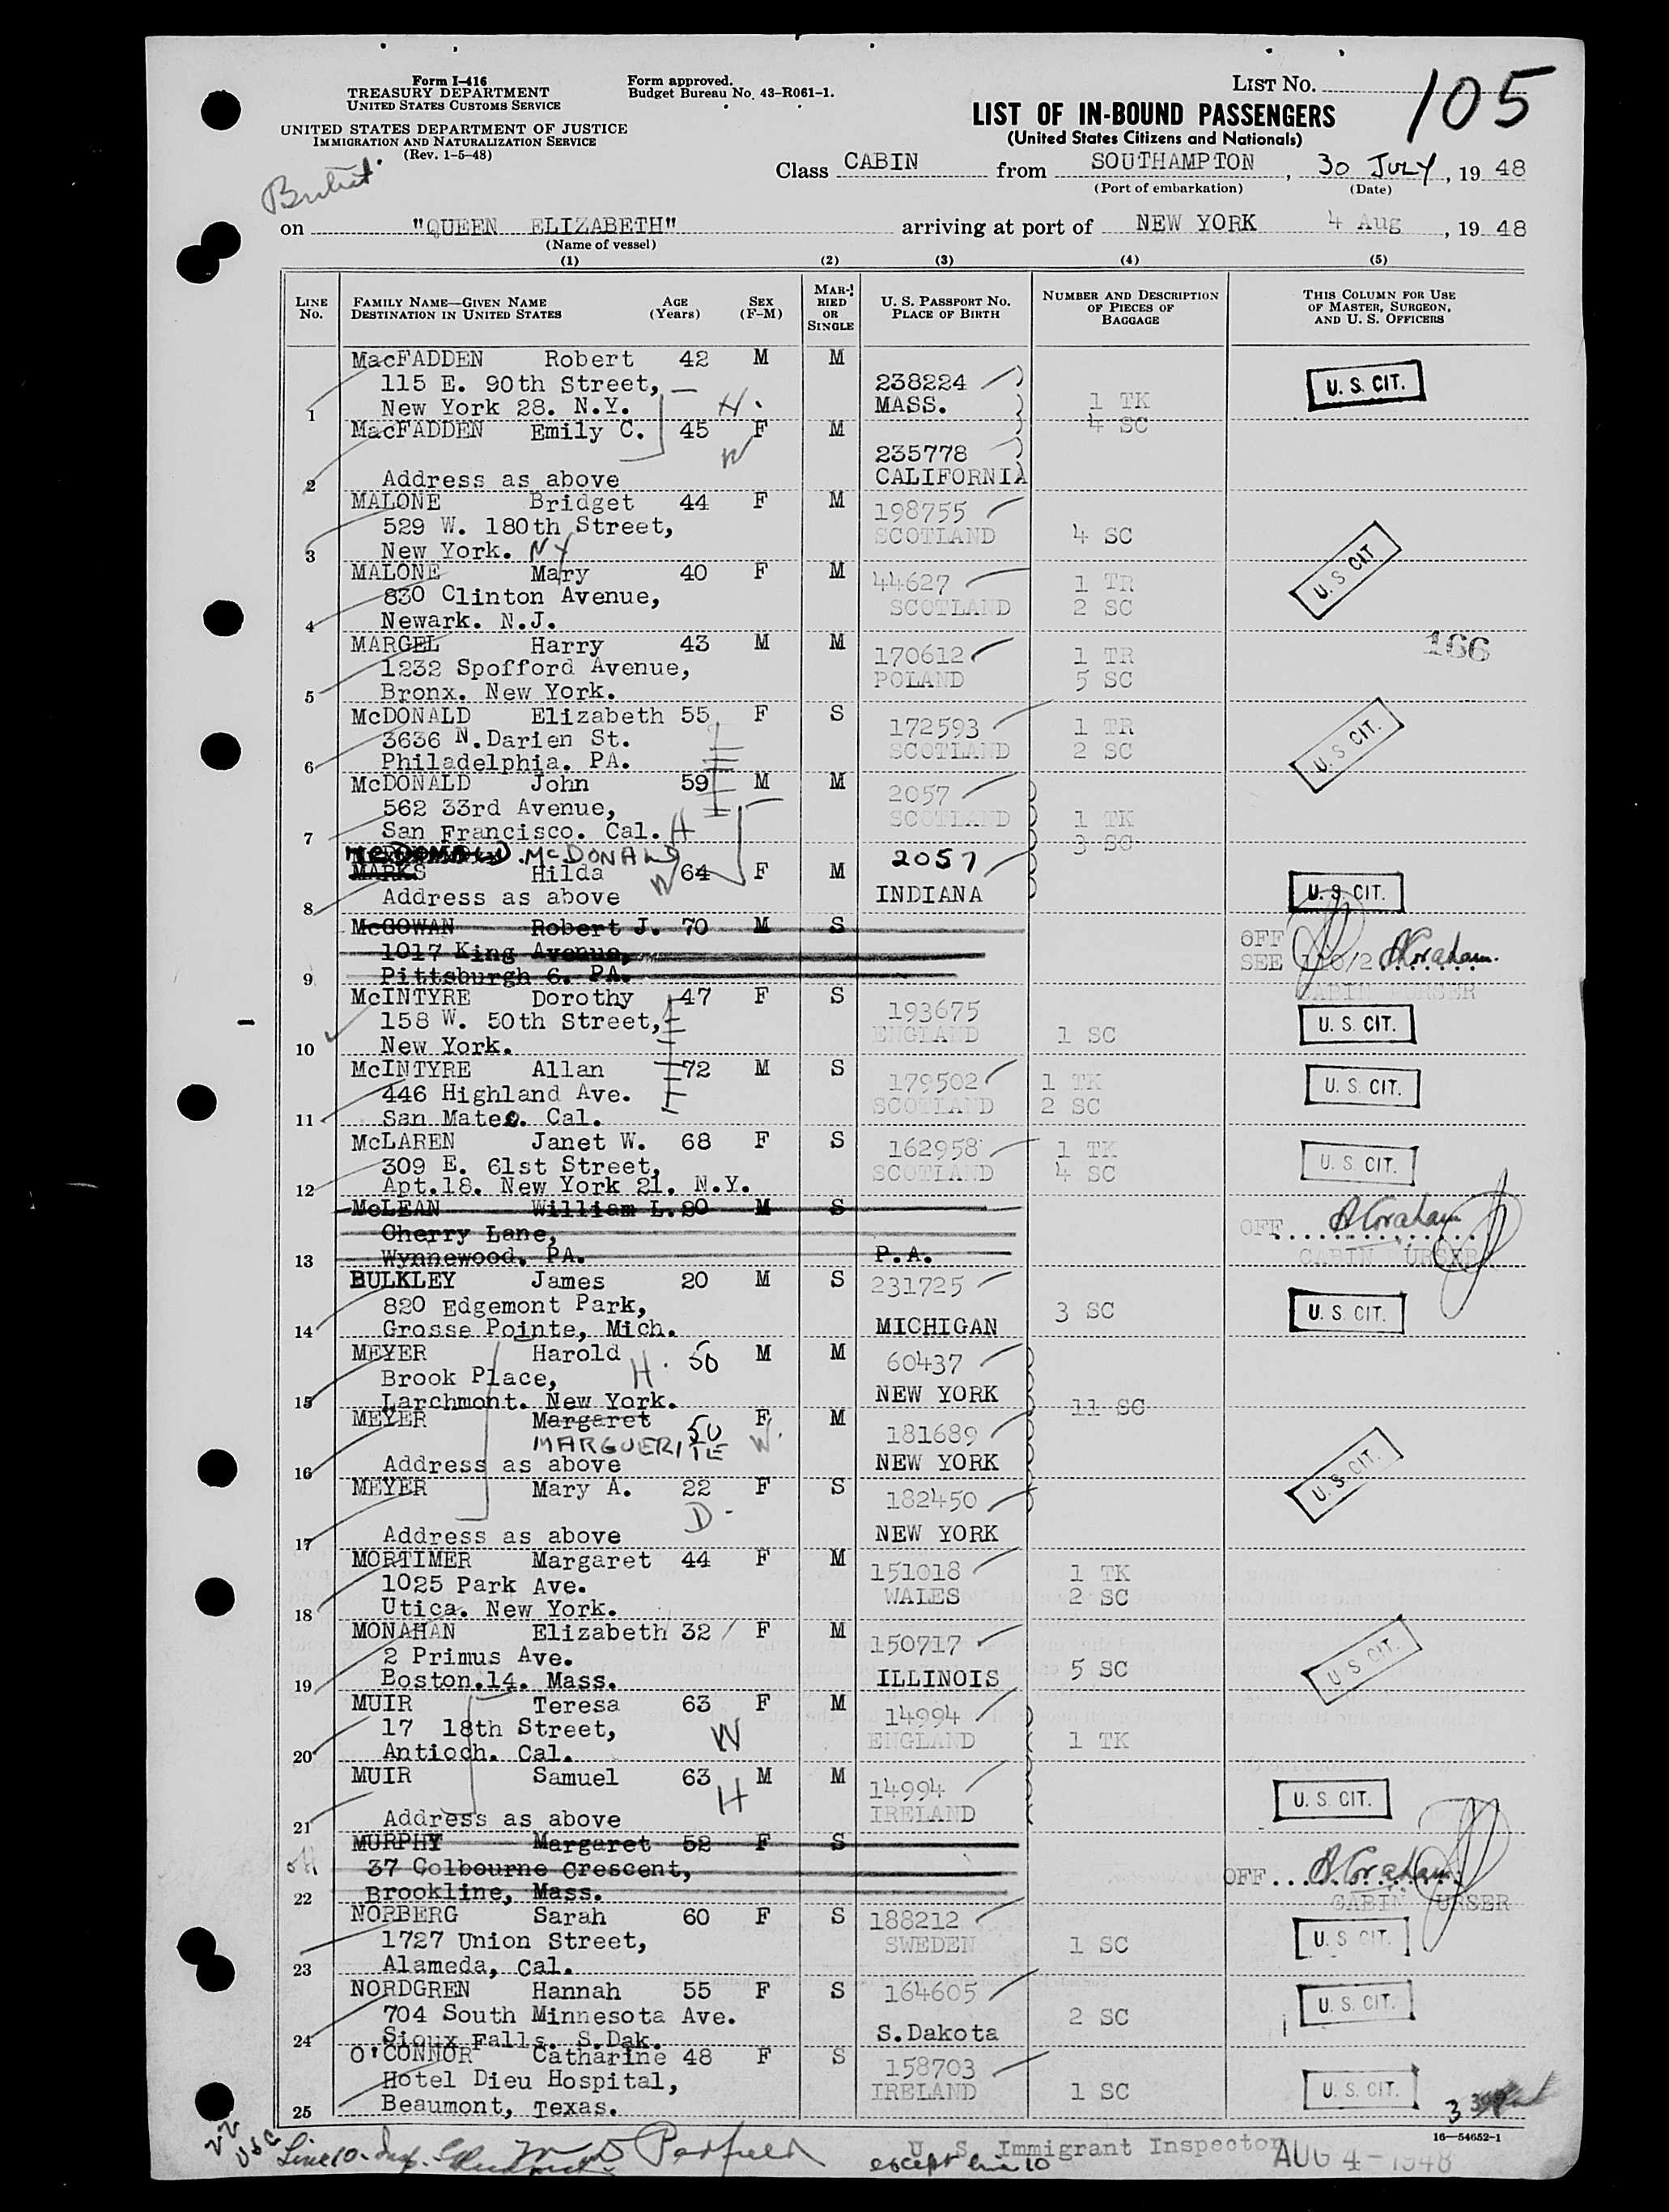 Form I-416
TREASURY DEPARTMENT
UNITED STATES CUSTOMS SERVICE
UNITED STATES DEPARTMENT OF JUSTICE
IMMIGRATION AND NATURALIZATION SERVICE
(Rev. 1-5-48)
Form approved.
Budget Bureau No. 43-R061-1.
LIST NO. 105
LIST OF IN-BOUND PASSENGERS
(United States Citizens and Nationals)
Class CABIN from SOUTHAMPTON, 30 JULY, 19 48
(Port of embarkation) (Date)
on "QUEEN ELIZABETH" arriving at port of NEW YORK 4 Aug, 19 48
(Name of vessel)
(1) (2) (3) (4) (5)
LINE NO. FAMILY NAME—GIVEN NAME DESTINATION IN UNITED STATES AGE (Years) SEX (F-M) MARRIED OR SINGLE U. S. PASSPORT NO. PLACE OF BIRTH NUMBER AND DESCRIPTION OF PIECES OF BAGGAGE THIS COLUMN FOR USE OF MASTER, SURGEON, AND U. S. OFFICERS
MacFADDEN Robert 42 M M
115 E. 90th Street, 238224 U. S. CIT.
1 New York 28. N.Y. H. MASS. 1 TK
MacFADDEN Emily C. 45 F M 4 SC
W 235778
2 Address as above CALIFORNIA
MALONE Bridget 44 F M 198755
529 W. 180th Street, SCOTLAND 4 SC
3 New York. NY
MALONE Mary 40 F M 44627 1 TR U. S. CIT
830 Clinton Avenue, SCOTLAND 2 SC
4 Newark. N.J.
MARGEL Harry 43 M M 170612 1 TR 166
1232 Spofford Avenue, POLAND 5 SC
5 Bronx. New York.
McDONALD Elizabeth 55 F S 172593 1 TR
3636 N. Darien St. SCOTLAND 2 SC U. S. CIT.
6 Philadelphia. PA.
McDONALD John 59 M M 2057
562 33rd Avenue, SCOTLAND 1 TK
7 San Francisco. Cal. H 3 SC
McDONALD. McDONALD 2057
MARKS Hilda W 64 F M
8 Address as above INDIANA U. S. CIT.
McGOWAN Robert J. 70 M S OFF
1017 King Avenue, SEE
9 Pittsburgh 6. PA. CABIN PURSER
McINTYRE Dorothy 47 F S 193675
158 W. 50th Street, ENGLAND 1 SC U. S. CIT.
10 New York.
McINTYRE Allan 72 M S 179502 1 TK U. S. CIT.
446 Highland Ave. SCOTLAND 2 SC
11 San Mateo. Cal.
McLAREN Janet W. 68 F S 162958 1 TK U. S. CIT.
309 E. 61st Street, SCOTLAND 4 SC
12 Apt.18. New York 21. N.Y.
McLEAN William L. 20 M S
Cherry Lane, OFF
13 Wynnewood. PA. P.A. CABIN URSER
BULKLEY James 20 M S 231725
820 Edgemont Park, 3 SC U. S. CIT.
14 Grosse Pointe, Mich. MICHIGAN
MEYER Harold H. 50 M M 60437
Brook Place, NEW YORK
15 Larchmont. New York. 11 SC
MEYER Margaret 50 F M 181689
MARGUERITE W.
16 Address as above NEW YORK U. S. CIT.
MEYER Mary A. 22 F S 182450
D-
17 Address as above NEW YORK
MORTIMER Margaret 44 F M 151018 1 TK
1025 Park Ave. WALES 2 SC
18 Utica. New York.
MONAHAN Elizabeth 32 F M 150717
2 Primus Ave. 5 SC U. S. CIT.
19 Boston.14. Mass. ILLINOIS
MUIR Teresa 63 F M 14994
17 18th Street, W ENGLAND 1 TK
20 Antioch. Cal.
MUIR Samuel 63 M M 14994 U. S. CIT.
H IRELAND
21 Address as above
MURPHY Margaret 52 F S
off 37 Colbourne Crescent, OFF
22 Brookline, Mass. CABIN URSER
NORBERG Sarah 60 F S 188212
1727 Union Street, SWEDEN 1 SC U. S. CIT.
23 Alameda, Cal.
NORDGREN Hannah 55 F S 164605 U. S. CIT.
704 South Minnesota Ave. 2 SC
24 Sioux Falls. S.Dak. S.Dakota
O'CONNOR Catharine 48 F S 158703
Hotel Dieu Hospital, IRELAND 1 SC U. S. CIT.
25 Beaumont, Texas.
16—54652-1
22 USC Line 10 Padfield U. S. Immigrant Inspector
except line 10 AUG 4 - 1948